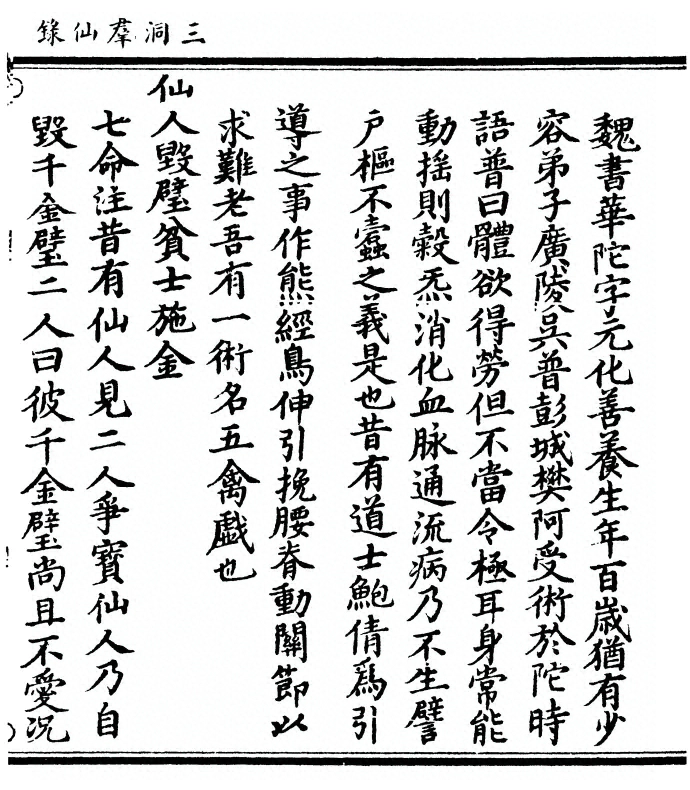 三洞羣仙錄
魏書華陀字元化善養生年百歲猶有少
容弟子廣陵吳普彭城樊阿受術於陀時
語普曰體欲得勞但不當令極耳身常能
動摇則穀炁消化血脉通流病乃不生譬
户樞不蠹之義是也昔有道士鮑倩爲引
導之事作熊經鳥伸引挽腰脊動關節以
求難老吾有一術名五禽戲也
仙人毀璧貧士施金
七命注昔有仙人見二人爭寶仙人乃自
毀千金璧二人曰彼千金璧尚且不愛况